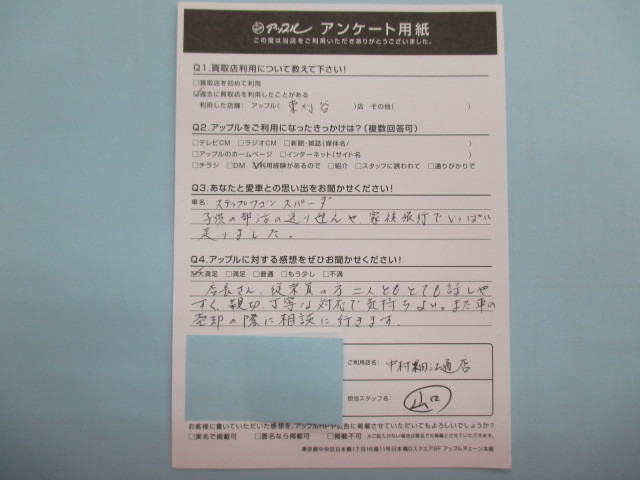 アップル アンケート用紙
この度は当店をご利用いただきありがとうございました。
Q1.買取店利用について教えて下さい!
□買取店を初めて利用
☑過去に買取店を利用したことがある
利用した店舗: アップル( 東刈谷 )店 その他( )
Q2.アップルをご利用になったきっかけは?(複数回答可)
□テレビCM □ラジオCM □新聞・雑誌(媒体名/ )
□アップルのホームページ □インターネット(サイト名 )
□チラシ □DM ☑利用経験があるので □紹介 □スタッフに誘われて □通りがかりで
Q3.あなたと愛車との思い出をお聞かせください!
車名: ステップワゴン スパーダ
子供の部活の送り迎えや、家族旅行でいっぱい
走りました。
Q4.アップルに対する感想をぜひお聞かせください!
☑大満足 □満足 □普通 □もう少し □不満
店長さん、従業員の方 二人ともとても話しや
すく、親切、丁寧な対応で気持ちよい。また車の
売却の際に相談に行きます。
ご利用店名: 中村黄金通店
担当スタッフ名: 山口
お客様に書いていただいた感想を、アップルHPや広告に掲載させていただいてもよろしいでしょうか?
□実名で掲載可 □匿名なら掲載可 □掲載不可 ※ご記入がない場合は匿名での掲載とさせていただきます。
東京都中央区日本橋1丁目16番11号日本橋Dスクエア8F アップルチェーン本部